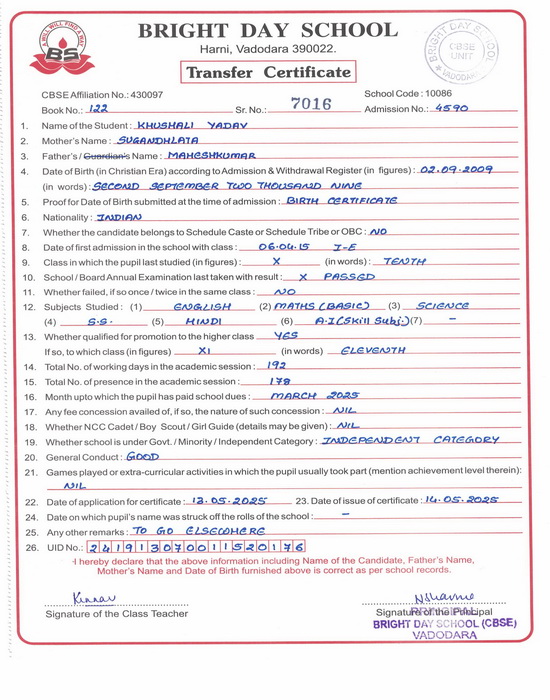 A WILL WILL FIND A WAY
BS
BRIGHT DAY SCHOOL
Harni, Vadodara 390022.
BRIGHT DAY SCHOOL
CBSE
UNIT
* VADODARA
Transfer Certificate
CBSE Affiliation No.: 430097 School Code : 10086
Book No.: 122 Sr. No.: 7016 Admission No.: 4590
1. Name of the Student : KHUSHALI YADAV
2. Mother's Name : SUGANDHLATA
3. Father's / Guardian's Name : MAHESHKUMAR
4. Date of Birth (in Christian Era) according to Admission & Withdrawal Register (in figures) : 02.09.2009
(in words) : SECOND SEPTEMBER TWO THOUSAND NINE
5. Proof for Date of Birth submitted at the time of admission : BIRTH CERTIFICATE
6. Nationality : INDIAN
7. Whether the candidate belongs to Schedule Caste or Schedule Tribe or OBC : NO
8. Date of first admission in the school with class : 06.04.15 I-E
9. Class in which the pupil last studied (in figures) : X (in words) : TENTH
10. School / Board Annual Examination last taken with result : X PASSED
11. Whether failed, if so once / twice in the same class : NO
12. Subjects Studied : (1) ENGLISH (2) MATHS (BASIC) (3) SCIENCE
(4) S.S. (5) HINDI (6) A.I (Skill Subj.) (7) –
13. Whether qualified for promotion to the higher class YES
If so, to which class (in figures) XI (in words) ELEVENTH
14. Total No. of working days in the academic session : 192
15. Total No. of presence in the academic session : 178
16. Month upto which the pupil has paid school dues : MARCH 2025
17. Any fee concession availed of, if so, the nature of such concession : NIL
18. Whether NCC Cadet / Boy Scout / Girl Guide (details may be given) : NIL
19. Whether school is under Govt. / Minority / Independent Category : INDEPENDENT CATEGORY
20. General Conduct : GOOD
21. Games played or extra-curricular activities in which the pupil usually took part (mention achievement level therein) :
NIL
22. Date of application for certificate : 13.05.2025 23. Date of issue of certificate : 14.05.2025
24. Date on which pupil's name was struck off the rolls of the school : –
25. Any other remarks : TO GO ELSEWHERE
26. UID No.: 241913070011520176
I hereby declare that the above information including Name of the Candidate, Father's Name,
Mother's Name and Date of Birth furnished above is correct as per school records.
Signature of the Class Teacher Signature of the Principal
PRINCIPAL
BRIGHT DAY SCHOOL (CBSE)
VADODARA